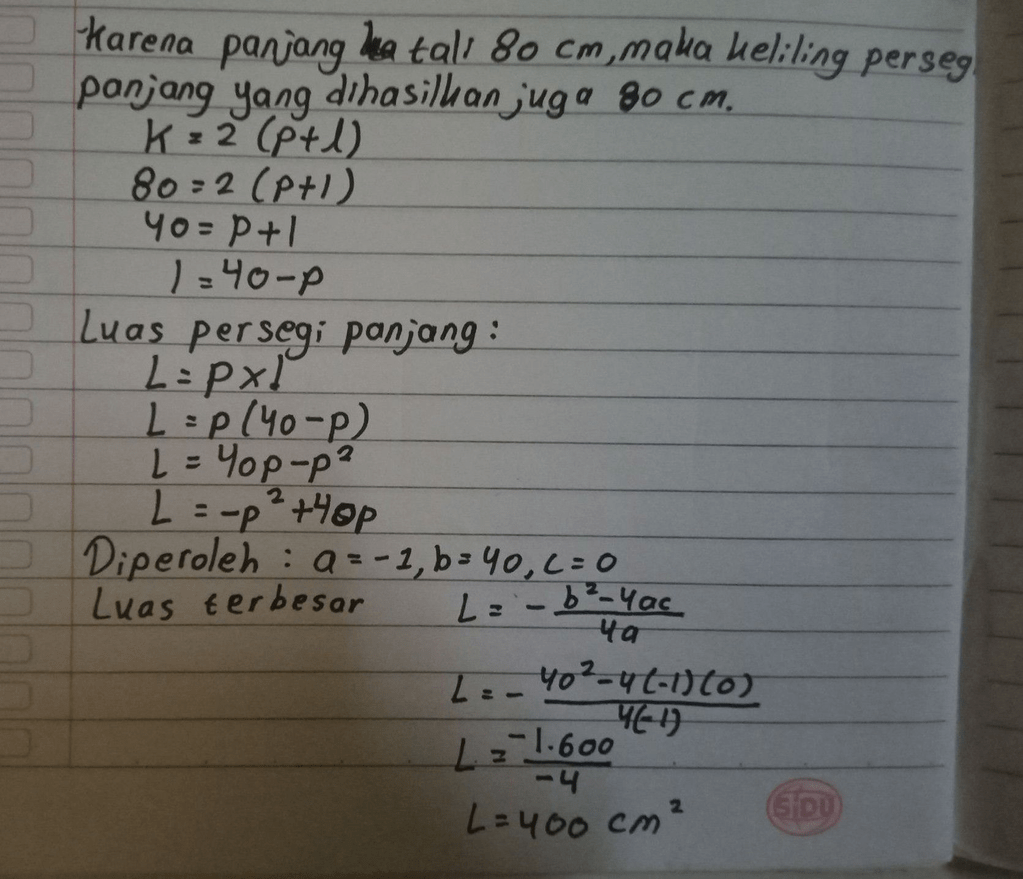 Karena panjang tali 80 cm, maka keliling perseg
panjang yang dihasilkan juga 80 cm.
K = 2 (p+l)
80 = 2 (p+l)
40 = p+l
l = 40-p
Luas persegi panjang :
L = p x l
L = p(40-p)
L = 40p-p²
L = -p²+40p
Diperoleh : a = -1, b = 40, c = 0
Luas terbesar L = - b²-4ac / 4a
L = - 40²-4(-1)(0) / 4(-1)
L = -1.600 / -4
L = 400 cm²
SiDU